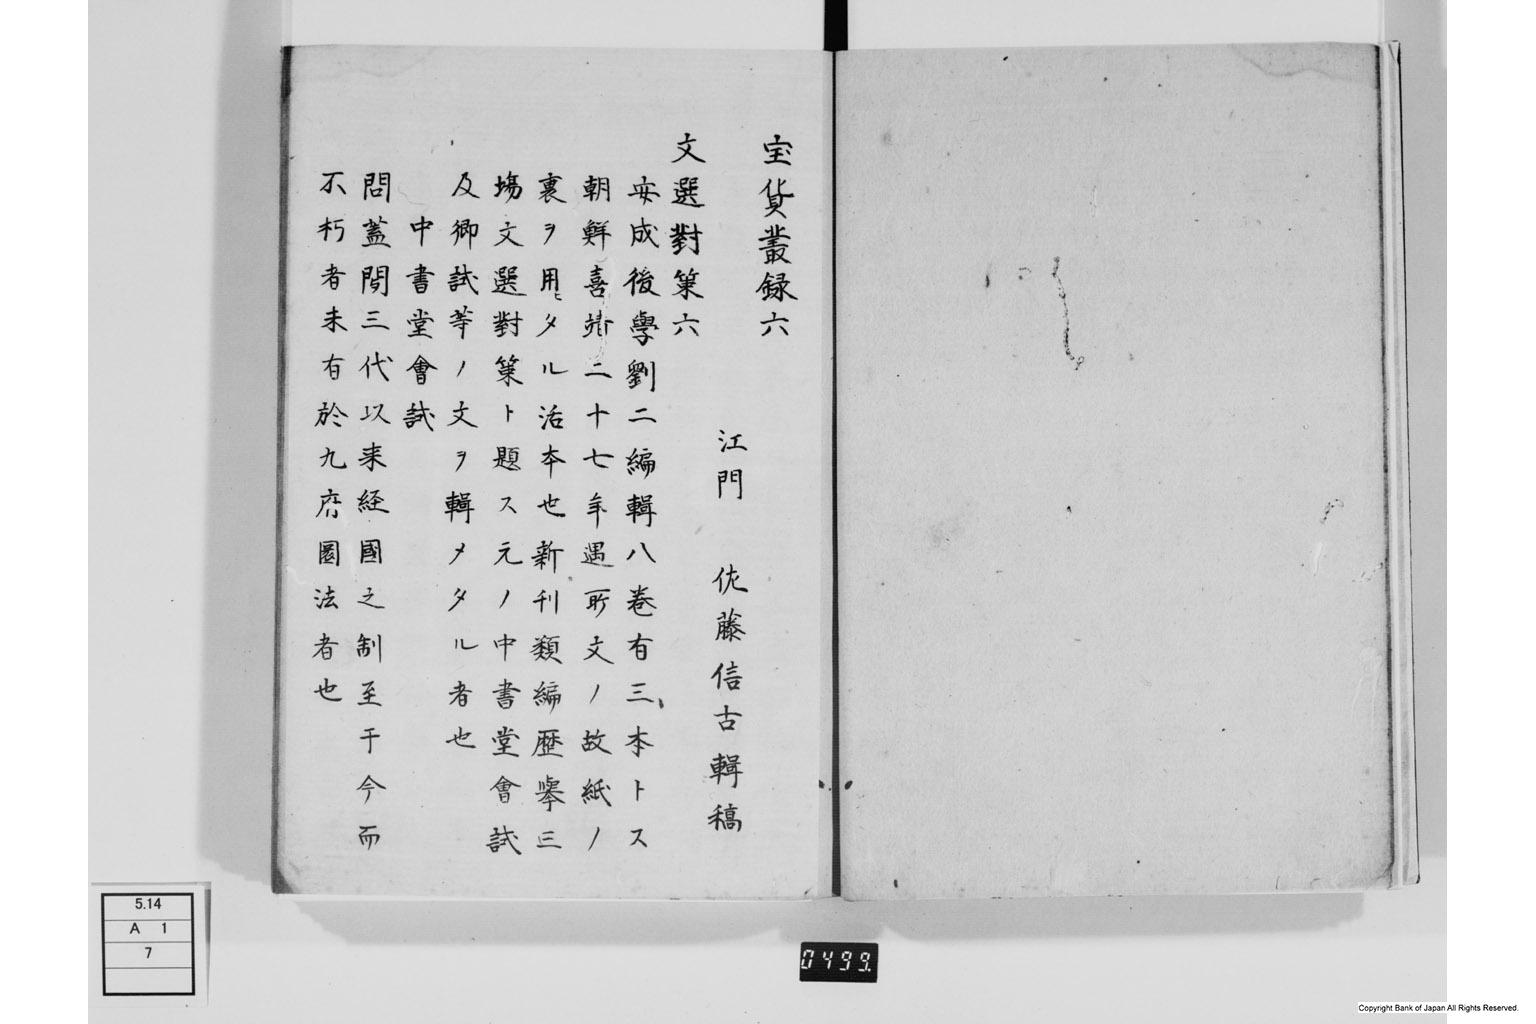 宝貨叢録六
江門 佐藤信古輯稿
文選對策六
安成後學劉二編輯八巻有三本トス
朝鮮喜靖二十七年遇所文ノ故紙ノ
裏ヲ用ヒタル活本也新刊類編歴擧三
塲文選對策ト題ス元ノ中書堂會試
及郷試等ノ文ヲ輯メタル者也
中書堂會試
問蓋聞三代以来経國之制至于今而
不朽者未有於九府圜法者也
5.14
A 1
7
0499.
Copyright Bank of Japan All Rights Reserved.